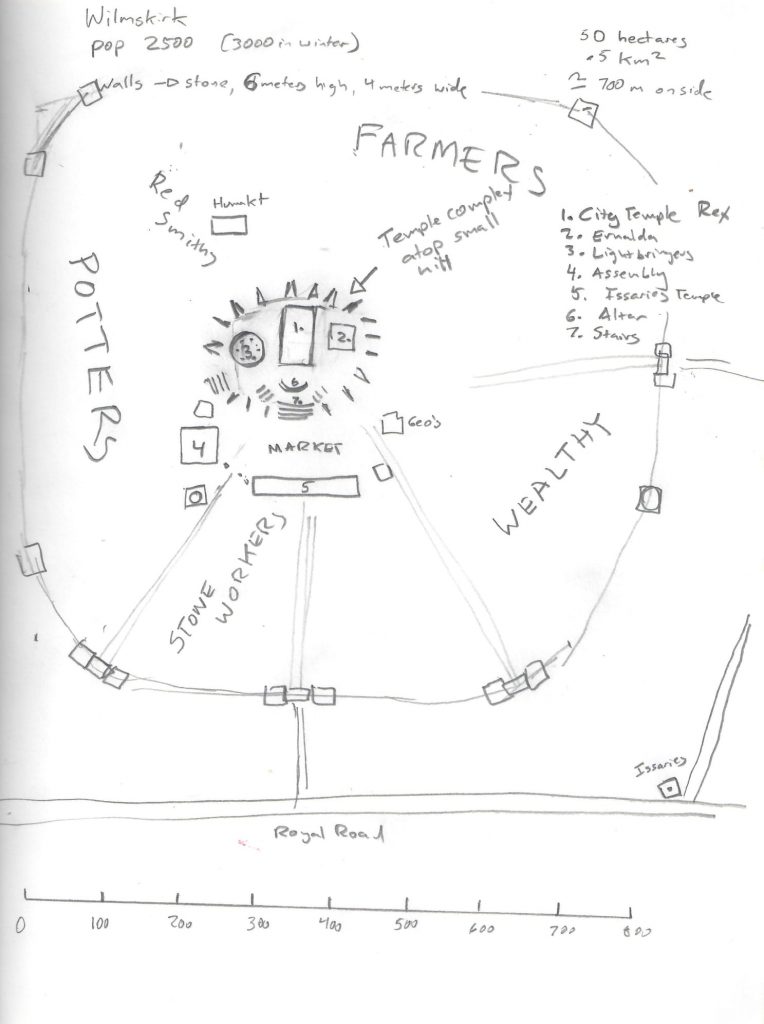 Wilmskirk
pop 2500 (3000 in winter)
50 hectares
.5 km²
≅ 700 m on side
Walls → stone, 6 meters high, 4 meters wide
FARMERS
Red
Smiths
Humakt
Temple complex
atop small
hill
1. City Temple Rex
2. Ernalda
3. Lightbringers
4. Assembly
5. Issaries Temple
6. Altar
7. Stairs
POTTERS
1.
2.
3
6
7.
4
MARKET
Geo's
5
WEALTHY
STONE
WORKERS
Issaries
Royal Road
0 100 200 300 400 500 600 700 800